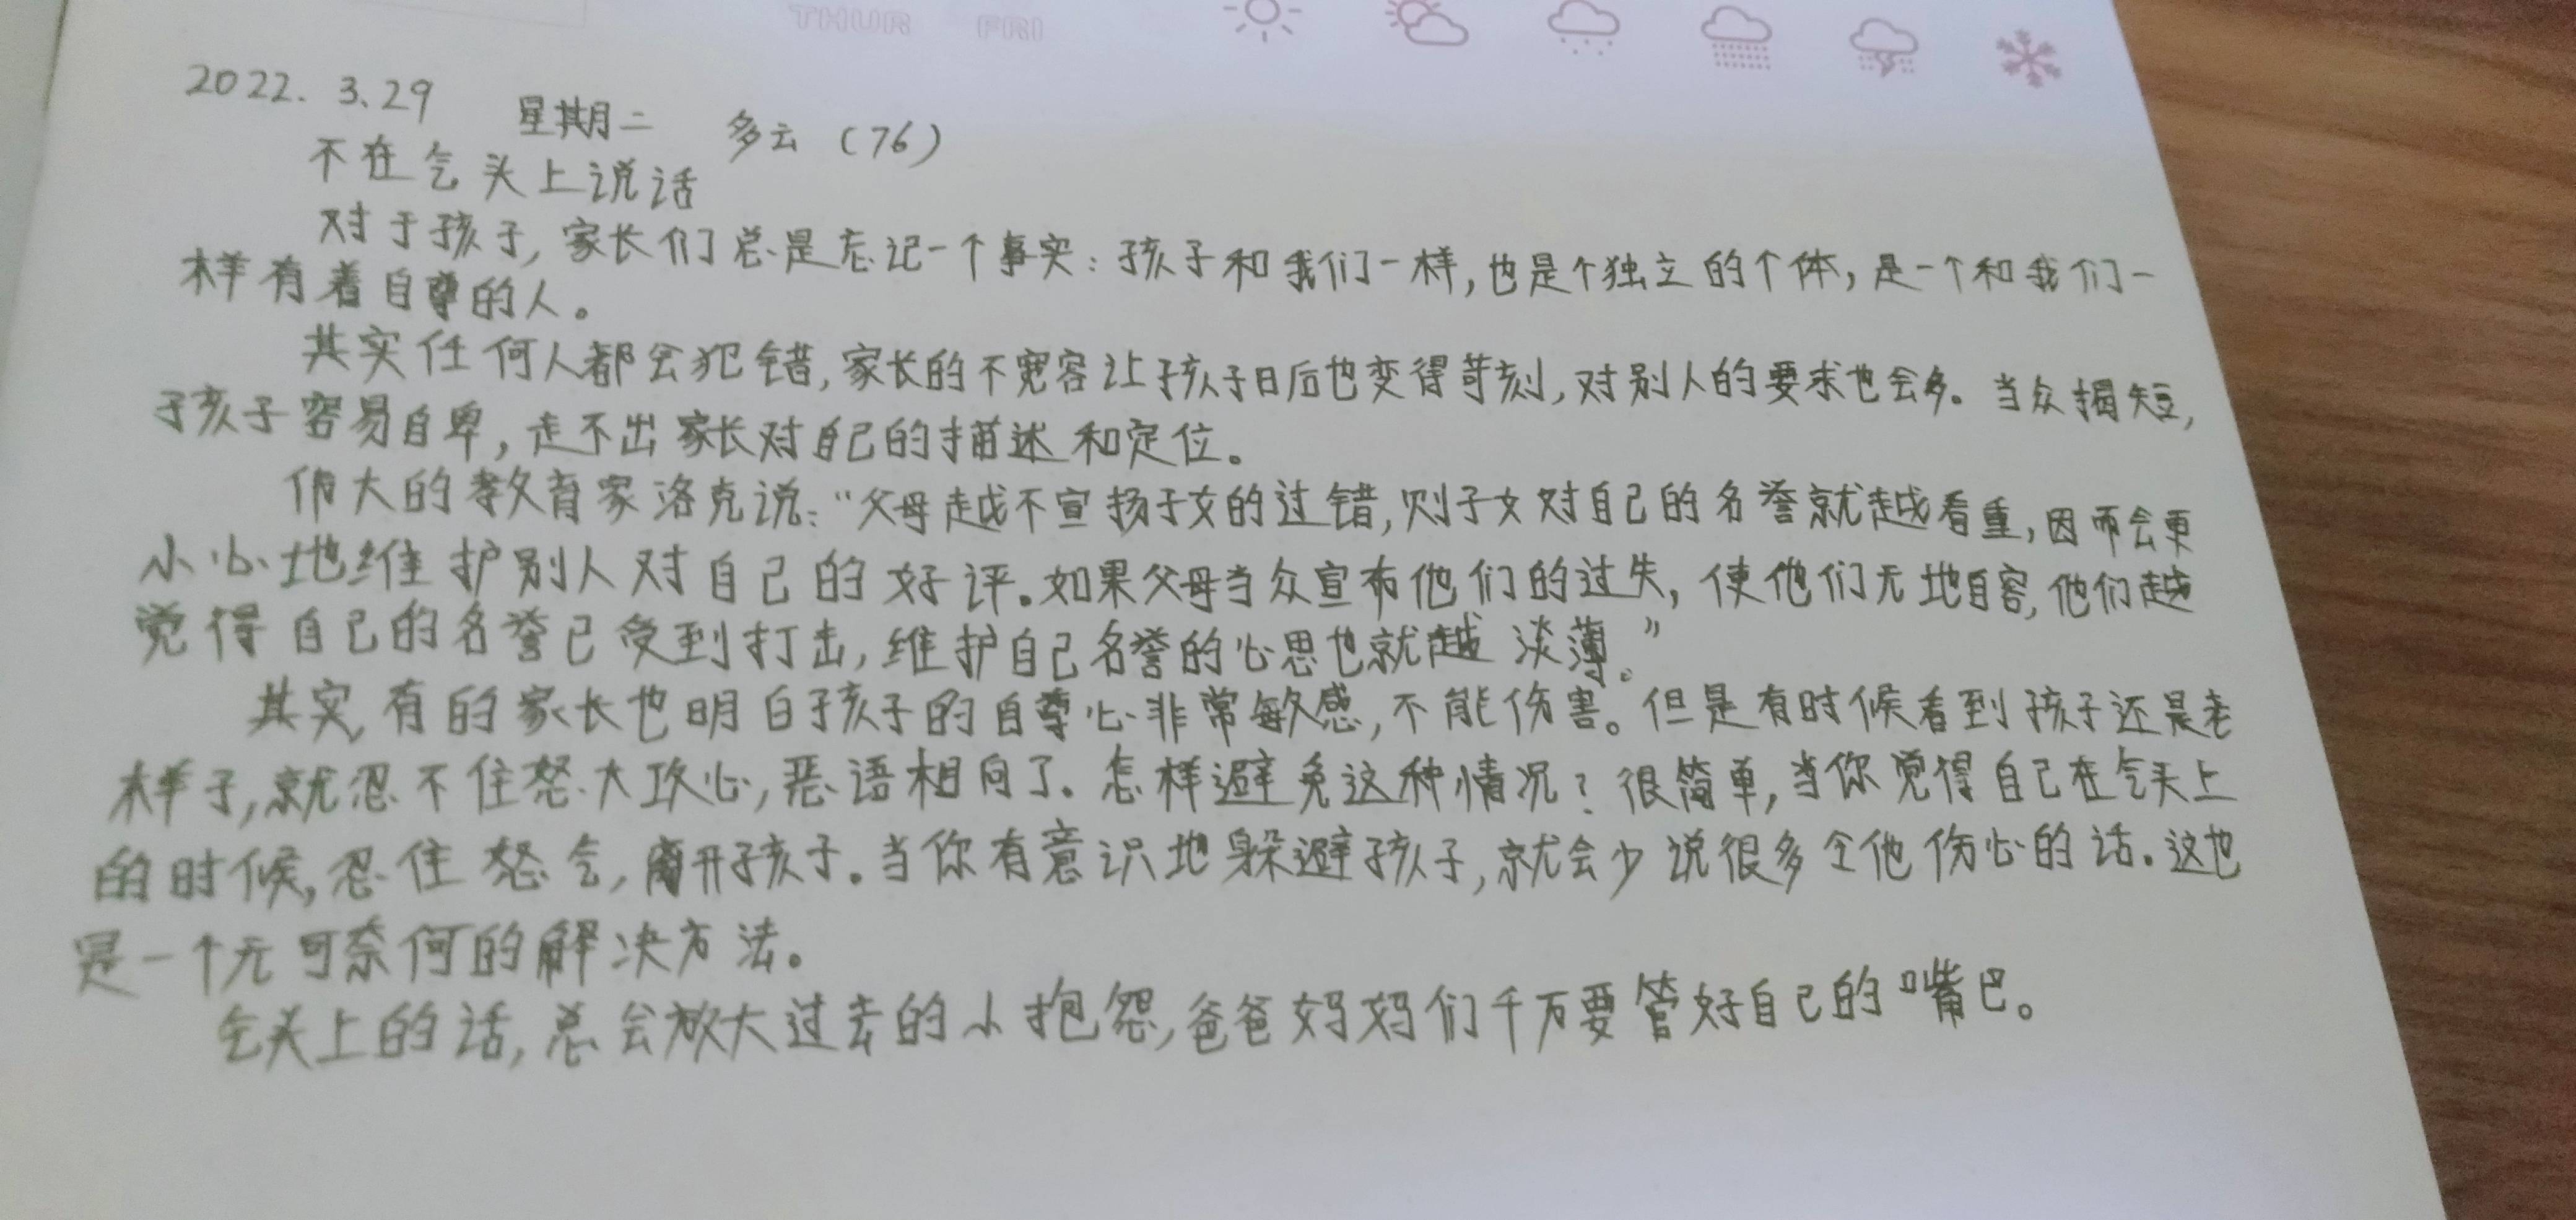 THUR FRI
2022. 3.29 星期二 多云（76）
不在气头上说话
对于孩子，家长们总是忘记一个事实：孩子和我们一样，也是个独立的个体，是一个和我们一
样有着自尊的人。
其实任何人都会犯错，家长的不宽容让孩子日后也变得苛刻，对别人的要求也会多。当众揭短，
孩子容易自卑，走不出家长对自己的描述和定位。
伟大的教育家洛克说：“父母越不宣扬子女的过错，则子女对自己的名誉就越看重，因而会更
小心地维护别人对自己的好评。如果父母当众宣布他们的过失，使他们无地自容，他们越
觉得自己的名誉已受到打击，维护自己名誉的心思也就越淡薄。”
其实，有的家长也明白孩子的自尊心非常敏感，不能伤害。但是有时候看到孩子还是老
样子，就忍不住怒大攻心，恶语相向了。怎样避免这种情况？很简单，当你觉得自己在气头上
的时候，忍住怒气，离开孩子。当你有意识地躲避孩子，就会少说很多令他伤心的话。这也
是一个无可奈何的解决方法。
气头上的话，总会放大过去的小抱怨，爸爸妈妈们千万要管好自己的嘴巴。